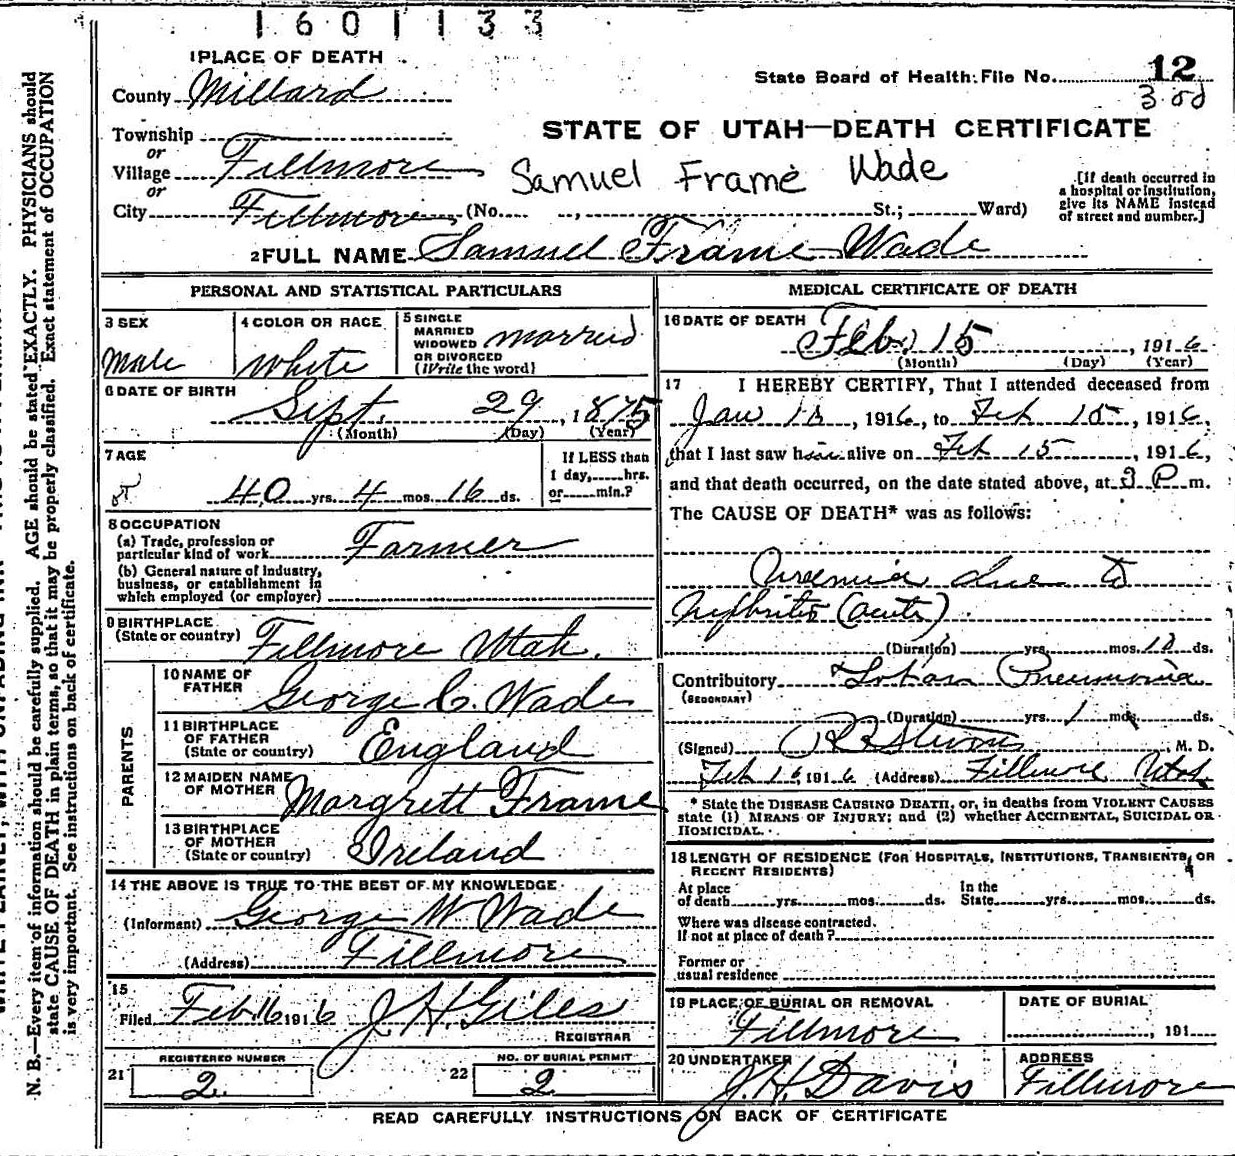 1601133
1 PLACE OF DEATH
County Millard
State Board of Health File No. 12
3 rd
Township
or
Village Fillmore
or
City Fillmore (No. , St.; Ward)
STATE OF UTAH—DEATH CERTIFICATE
Samuel Frame Wade
[If death occurred in
a hospital or institution,
give its NAME instead
of street and number.]
2 FULL NAME Samuel Frame Wade
PERSONAL AND STATISTICAL PARTICULARS
3 SEX
Male
4 COLOR OR RACE
White
5 SINGLE
MARRIED
WIDOWED
OR DIVORCED
(Write the word)
married
6 DATE OF BIRTH
Sept. 29, 1875
(Month) (Day) (Year)
7 AGE
40 yrs. 4 mos. 16 ds.
If LESS than
1 day, hrs.
or min.?
8 OCCUPATION
(a) Trade, profession or
particular kind of work Farmer
(b) General nature of industry,
business, or establishment in
which employed (or employer)
9 BIRTHPLACE
(State or country) Fillmore Utah.
PARENTS
10 NAME OF
FATHER George C. Wade
11 BIRTHPLACE
OF FATHER
(State or country) England
12 MAIDEN NAME
OF MOTHER Margrett Frame
13 BIRTHPLACE
OF MOTHER
(State or country) Ireland
14 THE ABOVE IS TRUE TO THE BEST OF MY KNOWLEDGE
(Informant) George W Wade
(Address) Fillmore
15
Filed Feb. 16 1916 J H Giles
REGISTRAR
REGISTERED NUMBER
21 2
NO. OF BURIAL PERMIT
22 2
MEDICAL CERTIFICATE OF DEATH
16 DATE OF DEATH
Feb. 15, 1916
(Month) (Day) (Year)
17 I HEREBY CERTIFY, That I attended deceased from
Jan 18, 1916, to Feb 15, 1916,
that I last saw him alive on Feb 15, 1916,
and that death occurred, on the date stated above, at 3 P m.
The CAUSE OF DEATH* was as follows:
Uremia due to
Nephritis (acute)
(Duration) yrs. mos. ds.
Contributory Lobar Pneumonia
(SECONDARY)
(Duration) yrs. 1 mos. ds.
(Signed) , M. D.
Feb 16 1916 (Address) Fillmore Utah
* State the DISEASE CAUSING DEATH, or, in deaths from VIOLENT CAUSES
state (1) MEANS OF INJURY; and (2) whether ACCIDENTAL, SUICIDAL OR
HOMICIDAL.
18 LENGTH OF RESIDENCE (FOR HOSPITALS, INSTITUTIONS, TRANSIENTS, OR
RECENT RESIDENTS)
At place
of death yrs. mos. ds.
In the
State yrs. mos. ds.
Where was disease contracted.
If not at place of death?
Former or
usual residence
19 PLACE OF BURIAL OR REMOVAL
Fillmore
DATE OF BURIAL
, 191
20 UNDERTAKER
J. H. Davis
ADDRESS
Fillmore
READ CAREFULLY INSTRUCTIONS ON BACK OF CERTIFICATE
N. B.—Every item of information should be carefully supplied. AGE should be stated EXACTLY. PHYSICIANS should
state CAUSE OF DEATH in plain terms, so that it may be properly classified. Exact statement of OCCUPATION
is very important. See instructions on back of certificate.